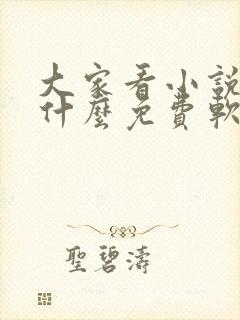 大家看小說
什麼免費軟
聖碧濤